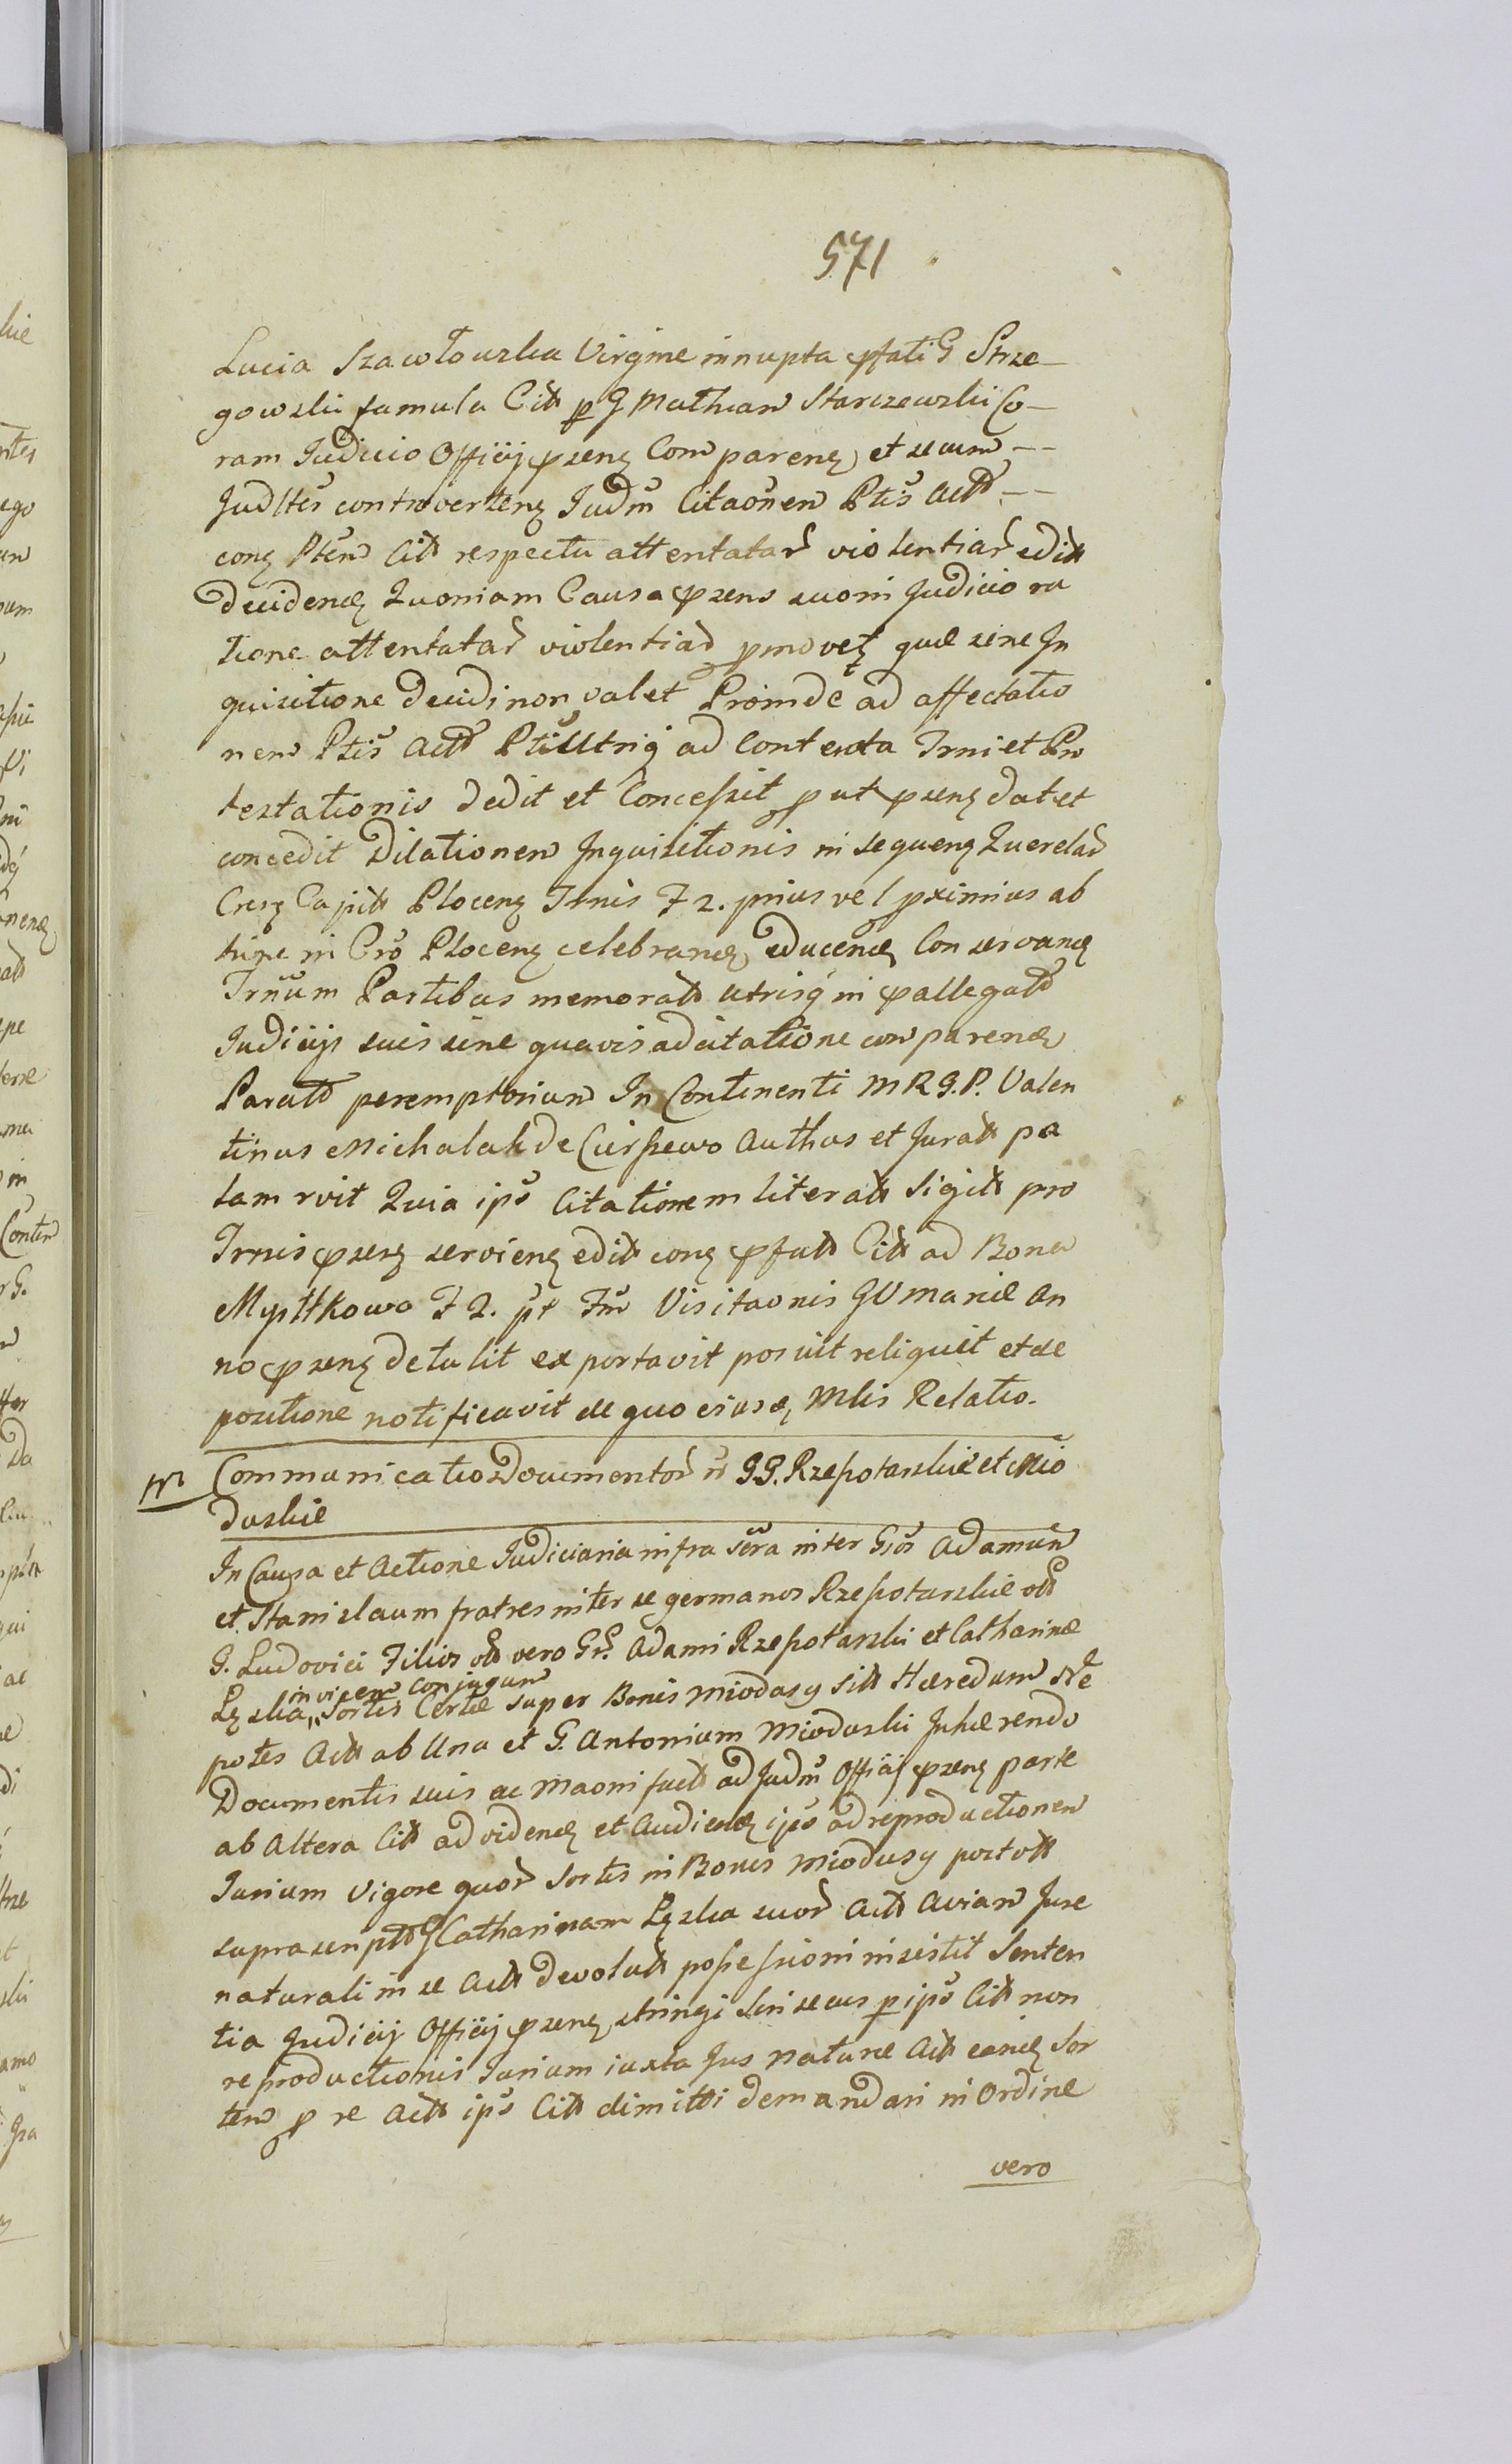 571
Lucia Szawłowska Virgine innupta pfati G Strze-
gowski famula Citt p G Mathiam Starczewski Co-
ram Judicio Officij psenz Comparenz et secum --
Judltr controvertenz Judm Citaonem Ptis Actt --
conz Ptem Citt respectu attentatar violentiar edit
decidendz Quoniam Causa psens suoni Judicio ra
tione attentatar violentiar pmovetz quæ sine In
quisitione decidi non valet Proinde ad affectatio
nem Ptis Actt Pti Utriq ad Contenta Trni et Pro
testationis dedit et Concessit put psenz dat et
concedit Dilationem Inquisitionis in sequenz Querelar
Cresz Capitt Plocenz Trnis F 2. prius vel pximius ab
hinc in Cro Plocenz celebrandz educendz Conservandz
Trnum Partibus memoratt utrisq in pallegatt
Judicijs suis sine quavis adcitatione comparendz
Paratt peremptorium In Continenti MRG.P. Valen
tinus Michalak de Cierszewo Authus et Juratt pa
lam rvit Quia ips Citationem literatt Sigitt pro
Trnis psenz servienz edit conz pfatt Citt ad Bona
Mysłkowo F 2. pt Fm Visitaonis GV Mariæ An
no psenz detulit exportavit posuit reliquit et de
positione notificavit de quo eiusdz Mlis Relatio.
Communicatio Documentor ir GG. Rzepotarskie et Mio
duskie
In Causa et Actione Judiciaria infra scra inter Gros Adamum
et Stanislaum fratres inter se germanos Rzepotarskie ott
G. Ludovici Filios ott vero Gr. Adami Rzepotarski et Catharinæ
invicem conjugum
Lęska "Sortis Certæ super Bonis Miodusy sitt Hæredum Ne
potes Actt ab Una et G. Antonium Mioduski Inhærendo
Documentis suis ac Maoni factt ad Judm Officij psenz parte
ab Altera Citt ad videndz et Audiendz ips ad reproductionem
Jurium vigore quor Sortis in Bonis Miodusy post ott
suprascriptt G Catharinam Lęska suor Actt Aviam Jure
naturali in se Actt devolutt possessioni insistit Senten
tia Judicij Officij psenz stringi Sin secus p ips Citt non
reproductionis Jurium iuxta Jus naturæ Actt eandz Sor
tem p se Actt ips Citt dimitti demandari in Ordine
vero